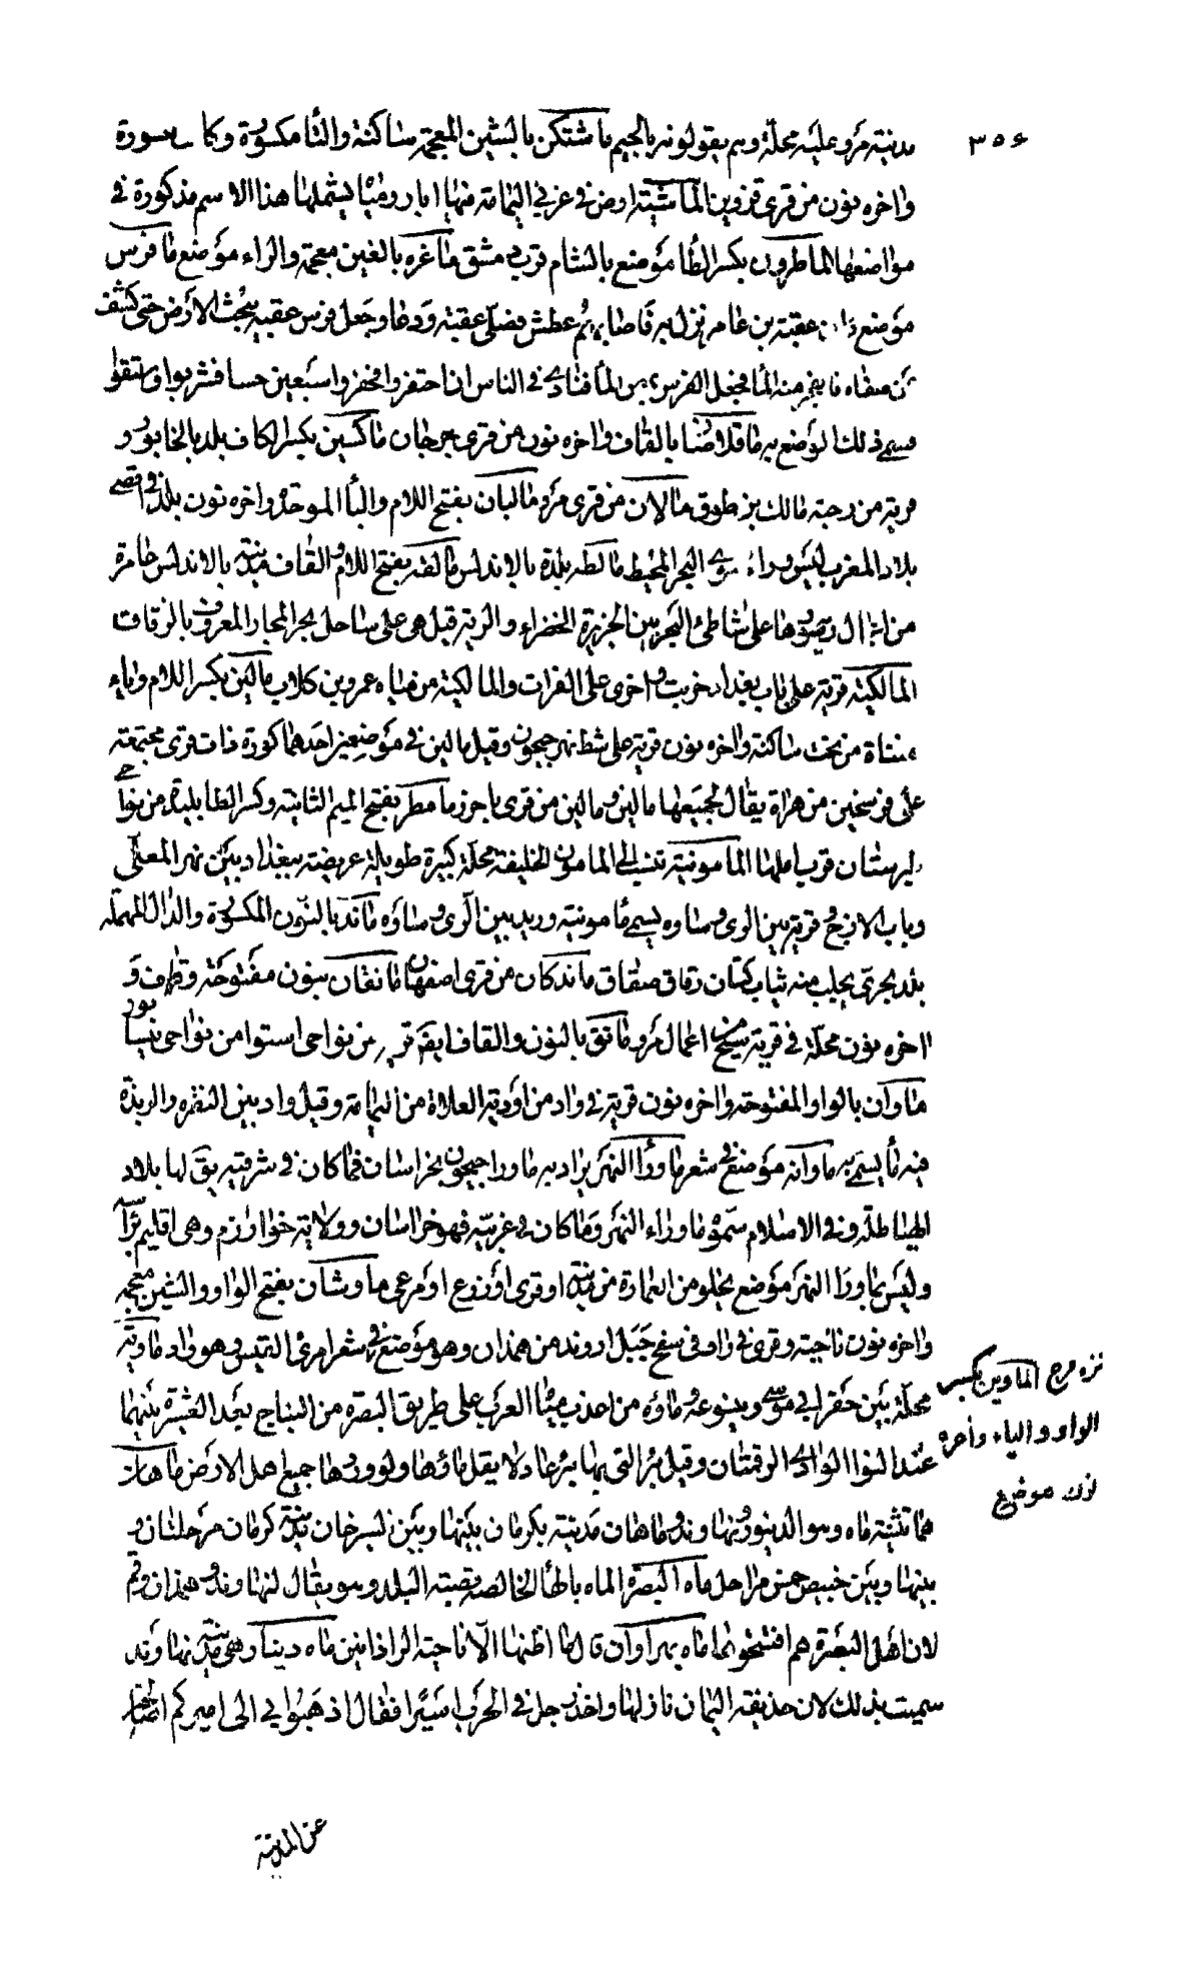 ٣٥٤
مدينة مرو عليه محلة وهم يقولونه بالجيم ماشتكن بالشين المعجمة ساكنة والتا مكسورة وكاف مكسورة
واخره نون من قرى قزوين الماشية ارض في غربي اليمامة فيها ابار ومياه يشملها هذا الاسم مذكورة في
مواضعها الماطرون بكسر الطا موضع بالشام قرب دمشق ماغره بالغين معجمة والراء موضع ما فرس
موضع عقبة بن عامر نزل به فاصابهم عطش فصلى عقبة ودعا وجعل فرس عقبة يبحث الارض حتى كشف
عن صفاه فانفجر منه الما فجعل الفرس يمص الما فنادى في الناس ان احتفروا فحفروا سبعين حسا فشربوا واستقوا
فسمى ذلك الموضع به ماقلاصان بالقاف واخره نون من قرى جرجان ماكسين بكسر الكاف بلد بالخابور و
قريه من رحبة مالك بن طوق مالان من قرى مرو مالبان بفتح اللام والبا الموحدة واخره نون بلد في اقصى
بلاد المغرب ليس وراءه سوى البحر المحيط مالطه بلدة بالاندلس مالقه بفتح اللام والقاف مدينة بالاندلس عامرة
من اعمال ريه سورها على شاطئ البحر بين الجزيرة الخضراء والمريه قيل هي على ساحل بحر المجاز المعروف بالزقاق
المالكية قرية على باب بغداد خربت واخرى على الفرات والمالكية من مياه عمرو بن كلاب مالين بكسر اللام وياء
مثناة من تحت ساكنة واخره نون قرية على شط نهر جيحون وقيل مالين في موضعين احدهما كورة ذات قرى مجتمعة
على فرسخين من هراة يقال لجميعها مالين ومالين من قرى باخرز مامطر بفتح الميم الثانية وكسر الطا بليدة من نواحي
طبرستان قرب املها المامونية تنسب الى المامون الخليفة محلة كبيرة طويلة عريضة ببغداد بين نهر المعلى
وباب الازج وقرية بين الرى وساوه يسمى مامونية وريد بين الرى وساوه ماند بالنون المكسورة والدال المهملة
بلد بحري يجلب منه ثياب كتان رقاق صفاق ماندكان من قرى اصفهان مانقان بنون مفتوحة وقاف و
اخره نون محلة في قرية سنج اعمال مرو مانق بالنون والقاف ايضا قريه من نواحي استوا من نواحي نيسابور
ماوان بالواو المفتوحة واخره نون قرية في واد من اودية العلاة من اليمامة وقيل واد بين النقره والربذة
فيه ما يسمى به ماوانه موضع في شعر ماوراالنهر يراد به ما ورا جيحون بخراسان فما كان في شرقيه يق لها بلاد
الهياطلة وفي الاسلام سموه ماوراء النهر وما كان في غربيه فهو خراسان وولاية خوارزم وهي اقليم براسه
وليس بماورا النهر موضع يخلو من العمارة من مدينة او قرى او زرع او مرعى ماوشان بفتح الواو والشين معجمه
واخره نون ناحية وقرى في واد في سفح جبل اروند من همدان وهو موضع نزه فرح الماوين بكسر
الواو والياء واخره
نون موضع
في شعر امرئ القيس وهو واد ماويه
محلة بين حفر ابي موسى وينسوعه وماؤه من اعذب مياه العرب على طريق البصرة من النباج بعد العشيرة بينهما
عند التوا الوادى الرقمتان وقيل بئر التي بها بئر عادية لا يقل ماؤها ولو وردها جميع اهل الارض ماهان
هما تثنية ماه وهو الدينور ونهاوند وماهان مدينة بكرمان بينها وبين السيرجان مدينة كرمان مرحلتان و
بينها وبين خبيص خمس مراحل ماه البصرة الماه بالهاء الخالصة قصبة البلد وهو يقال لنهاوند وهمذان وقم
لان اهل البصرة هم افتتحوها ماه بهراوان قال ما اظنها الا ناحية الراذانين ماه دينار هي مدينة نهاوند
سميت بذلك لان حذيفة اليمان نازلها واخذ رجل في الحرب اسيرا فقال اذهبوا بي الى اميركم اصالحه
عن المدينة